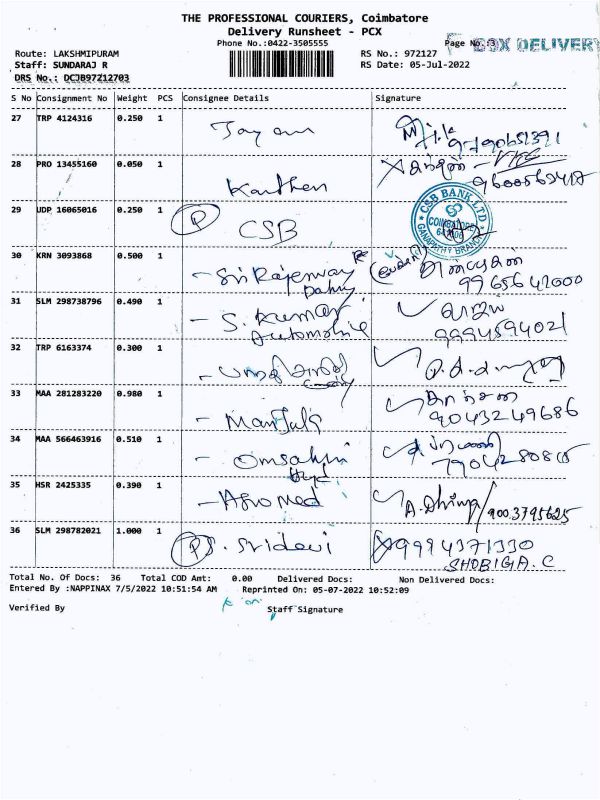 THE PROFESSIONAL COURIERS, Coimbatore
Delivery Runsheet - PCX
Phone No.:0422-3505555
Page No.:3
BOX DELIVERY
Route: LAKSHMIPURAM
RS No.: 972127
Staff: SUNDARAJ R
RS Date: 05-Jul-2022
DRS No.: DCJB97212703
S No Consignment No Weight PCS Consignee Details Signature
27 TRP 4124316 0.250 1
9790651391
28 PRO 13455160 0.050 1 Karthen
9600562417
29 UDP 16065016 0.250 1 P CSB
CSB BANK LTD
COIMBATORE
GANAPATHY BRANCH
30 KRN 3093868 0.500 1 - Sri Rajeswary
9965642000
31 SLM 298738796 0.490 1 - S. Kumar
Automobile
9994594021
32 TRP 6163374 0.300 1
33 MAA 281283220 0.980 1 - Manjula
9043249686
34 MAA 566463916 0.510 1 - Omsakthi
Hyd
35 HSR 2425335 0.390 1 - Afro Med A. Dhivya/9003795625
36 SLM 298782021 1.000 1 P S. Sridevi 9994371330
SHOBIGA. C
Total No. Of Docs: 36 Total COD Amt: 0.00 Delivered Docs: Non Delivered Docs:
Entered By :NAPPINAX 7/5/2022 10:51:54 AM Reprinted On: 05-07-2022 10:52:09
Verified By Staff Signature